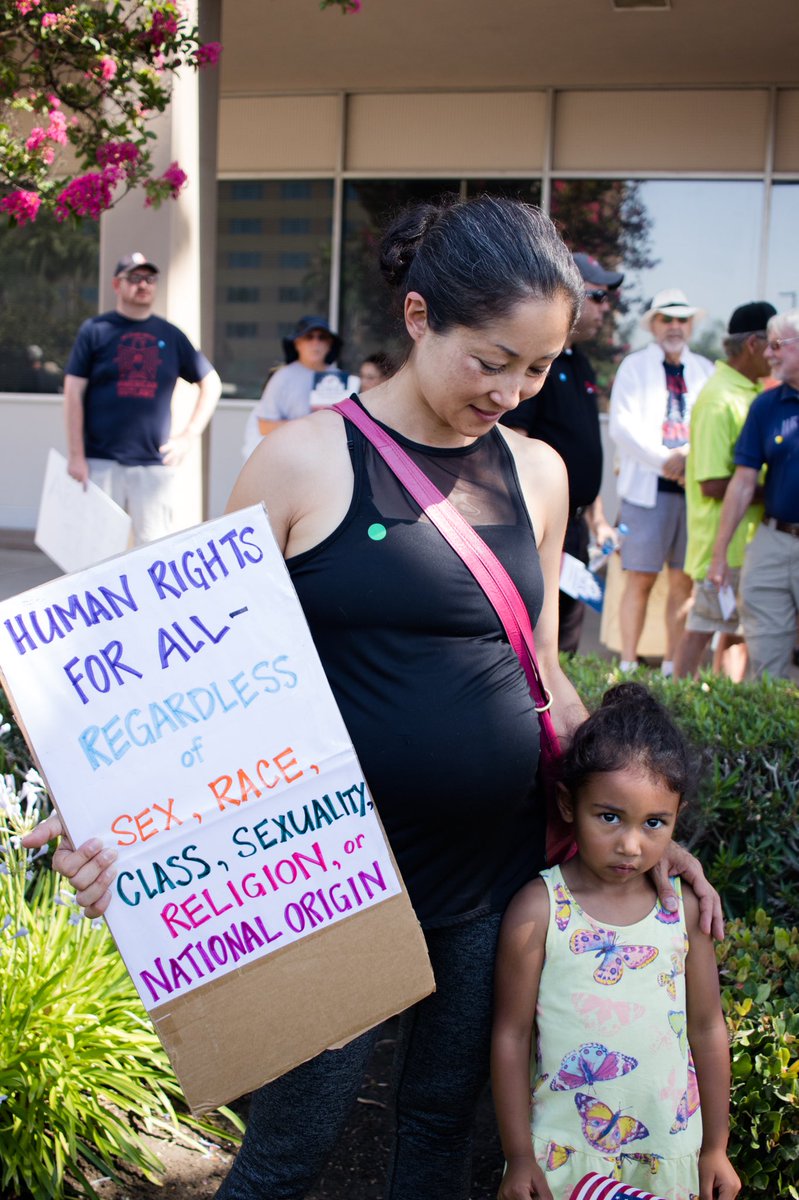 HUMAN RIGHTS
FOR ALL-
REGARDLESS
of
SEX, RACE,
CLASS, SEXUALITY,
RELIGION, or
NATIONAL ORIGIN